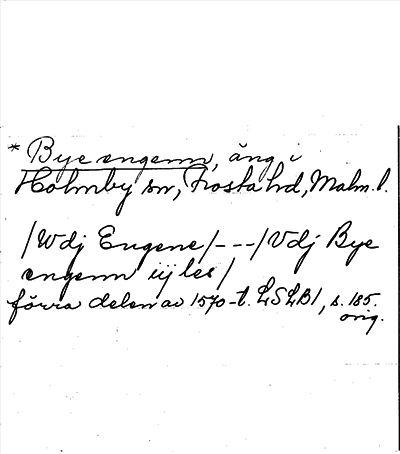 * Bye engenn, äng i
Holmby sn, Frosta hd, Malm. l.
/Wdj Eugene/---/Vdj Bye
engenn iij les/
förra delen av 1570-t. LSLB1, s. 185.
orig.